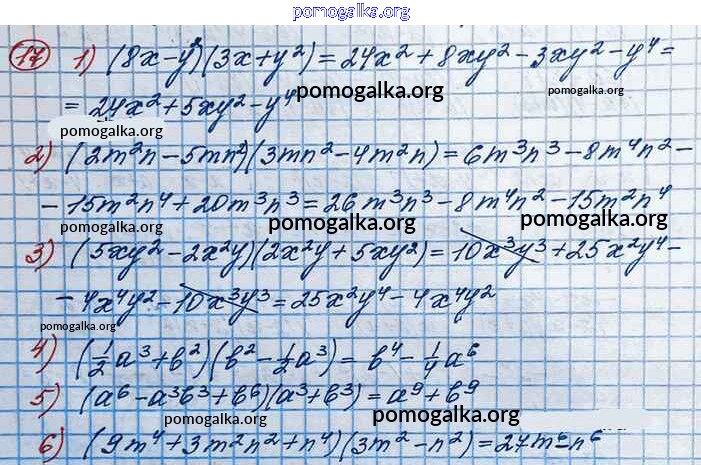 pomogalka.org
17 1) (8x-y²)(3x+y²)=24x²+8xy²-3xy²-y⁴=
=24x²+5xy²-y⁴ pomogalka.org pomogalka.org
pomogalka.org
2) (2m²n-5mn²)(3mn²-4m²n)=6m³n³-8m⁴n²-
-15m²n⁴+20m³n³=26m³n³-8m⁴n²-15m²n⁴
pomogalka.org pomogalka.org pomogalka.org
3) (5xy²-2x²y)(2x²y+5xy²)=10x³y³+25x²y⁴-
-4x⁴y²-10x³y³=25x²y⁴-4x⁴y²
pomogalka.org
4) (½a³+b²)(b²-½a³)=b⁴-¼a⁶
5) (a⁶-a³b³+b⁶)(a³+b³)=a⁹+b⁹
pomogalka.org pomogalka.org
6) (9m⁴+3m²n²+n⁴)(3m²-n²)=27m⁶-n⁶